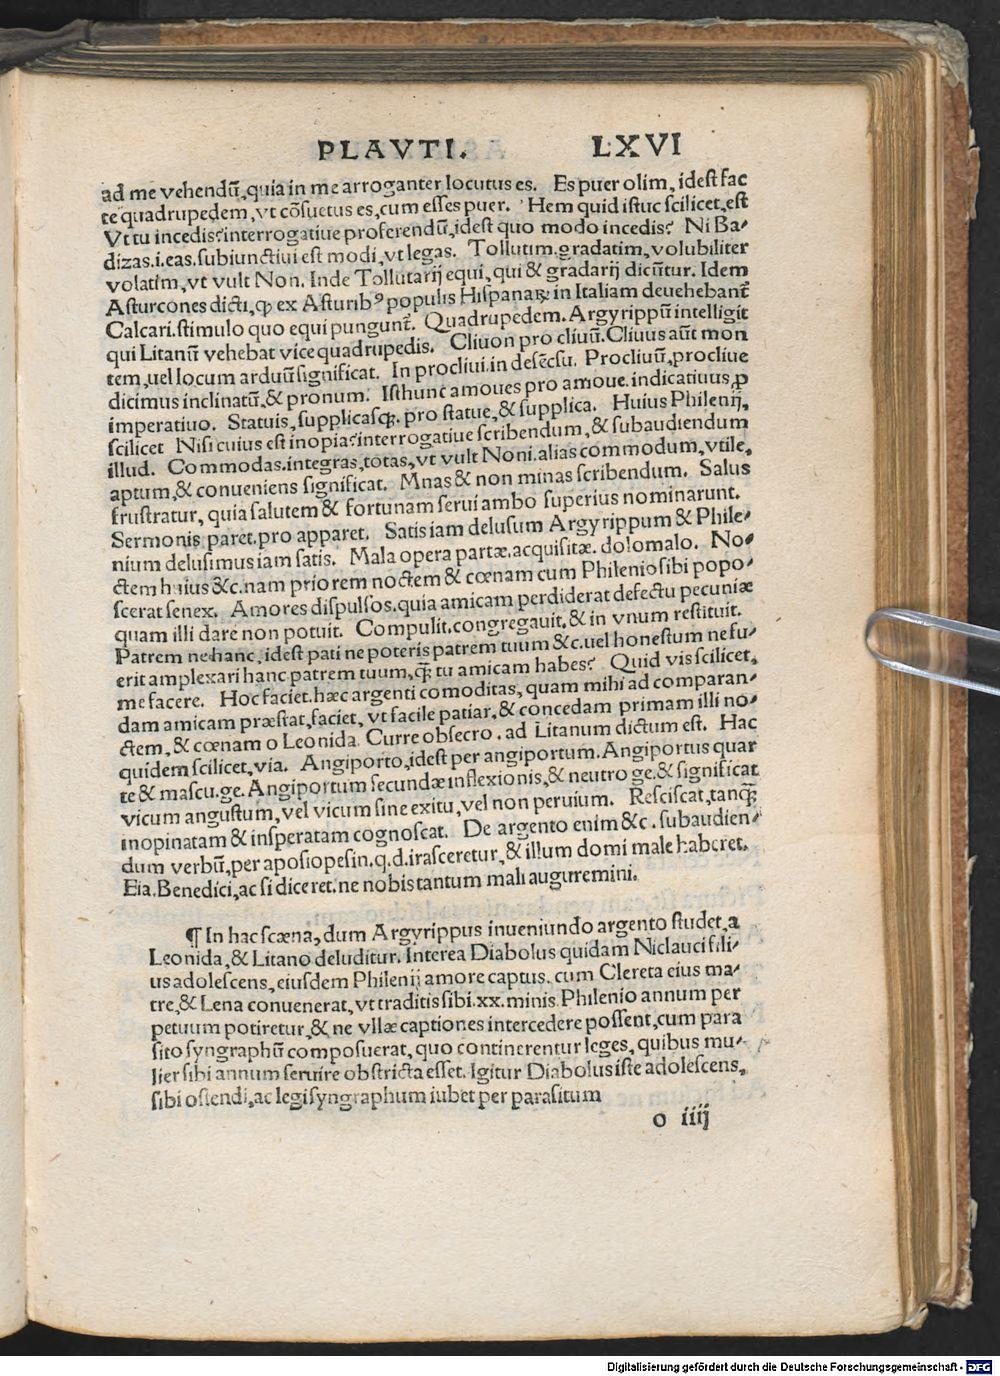 PLAVTI. LXVI
ad me vehendū, quia in me arroganter locutus es. Es puer olim, idest fac
te quadrupedem, vt cōsuetus es, cum esses puer. Hem quid istuc scilicet, est
Vt tu incedis? interrogatiue proferendū, idest quo modo incedis? Ni Ba⸗
dizas .i. eas. subiunctiui est modi, vt legas. Tollutim. gradatim, volubiliter
volatim, vt vult Non. Inde Tollutarij equi, qui & gradarij dicūtur. Idem
Asturcones dicti, ꝙ ex Asturibꝰ populis Hispanaꝝ in Italiam deuehebant̄
Calcari. stimulo quo equi pungunt̄. Quadrupedem. Argyrippū intelligit
qui Litanū vehebat vice quadrupedis. Cliuon pro cliuū. Cliuus aūt mon
tem, uel locum arduū significat. In procliui. in desēsu. Procliuū, procliue
dicimus inclinatū, & pronum. Isthunc amoues pro amoue. indicatiuus, ꝓ
imperatiuo. Statuis, supplicasqꝫ. pro statue, & supplica. Huius Philenij,
scilicet Nisi cuius est inopia? interrogatiue scribendum, & subaudiendum
illud. Commodas. integras, totas, vt vult Noni. alias commodum, vtile,
aptum, & conueniens significat. Mnas & non minas scribendum. Salus
frustratur, quia salutem & fortunam serui ambo superius nominarunt.
Sermonis paret. pro apparet. Satis iam delusum Argyrippum & Phile⸗
nium delusimus iam satis. Mala opera partæ. acquisitæ. dolo malo. No⸗
ctem huius &c. nam priorem noctem & cœnam cum Philenio sibi popo⸗
scerat senex. Amores dispulsos. quia amicam perdiderat defectu pecuniæ
quam illi dare non potuit. Compulit. congregauit, & in vnum restituit.
Patrem ne hanc, idest pati ne poteris patrem tuum &c. uel honestum ne fu⸗
erit amplexari hanc patrem tuum, q̄ꝫ tu amicam habes? Quid vis scilicet,
me facere. Hoc faciet. hæc argenti comoditas, quam mihi ad comparan⸗
dam amicam præstat, faciet, vt facile patiar, & concedam primam illi no⸗
ctem, & cœnam o Leonida. Curre obsecro. ad Litanum dictum est. Hac
quidem scilicet, via. Angiporto, idest per angiportum. Angiportus quar
te & mascu. ge. Angiportum secundæ inflexionis, & neutro ge. & significat
vicum angustum, vel vicum sine exitu, vel non peruium. Resciscat, tanq̄ꝫ
inopinatam & insperatam cognoscat. De argento enim &c. subaudien⸗
dum verbū, per aposiopesin. q. d. irasceretur, & illum domi male haberet.
Eia. Benedici, ac si diceret. ne nobis tantum mali auguremini.
¶ In hac scæna, dum Argyrippus inueniundo argento studet, a
Leonida, & Litano deluditur. Interea Diabolus quidam Niclauci fili⸗
us adolescens, eiusdem Philenij amore captus, cum Clereta eius ma⸗
tre, & Lena conuenerat, vt traditis sibi .xx. minis Philenio annum per
petuum potiretur, & ne vllæ captiones intercedere possent, cum para
sito syngraphū composuerat, quo continerentur leges, quibus mu⸗
lier sibi annum seruire obstricta esset. Igitur Diabolus iste adolescens,
sibi ostendi, ac legi syngraphum iubet per parasitum
o iiij
Digitalisierung gefördert durch die Deutsche Forschungsgemeinschaft - DFG